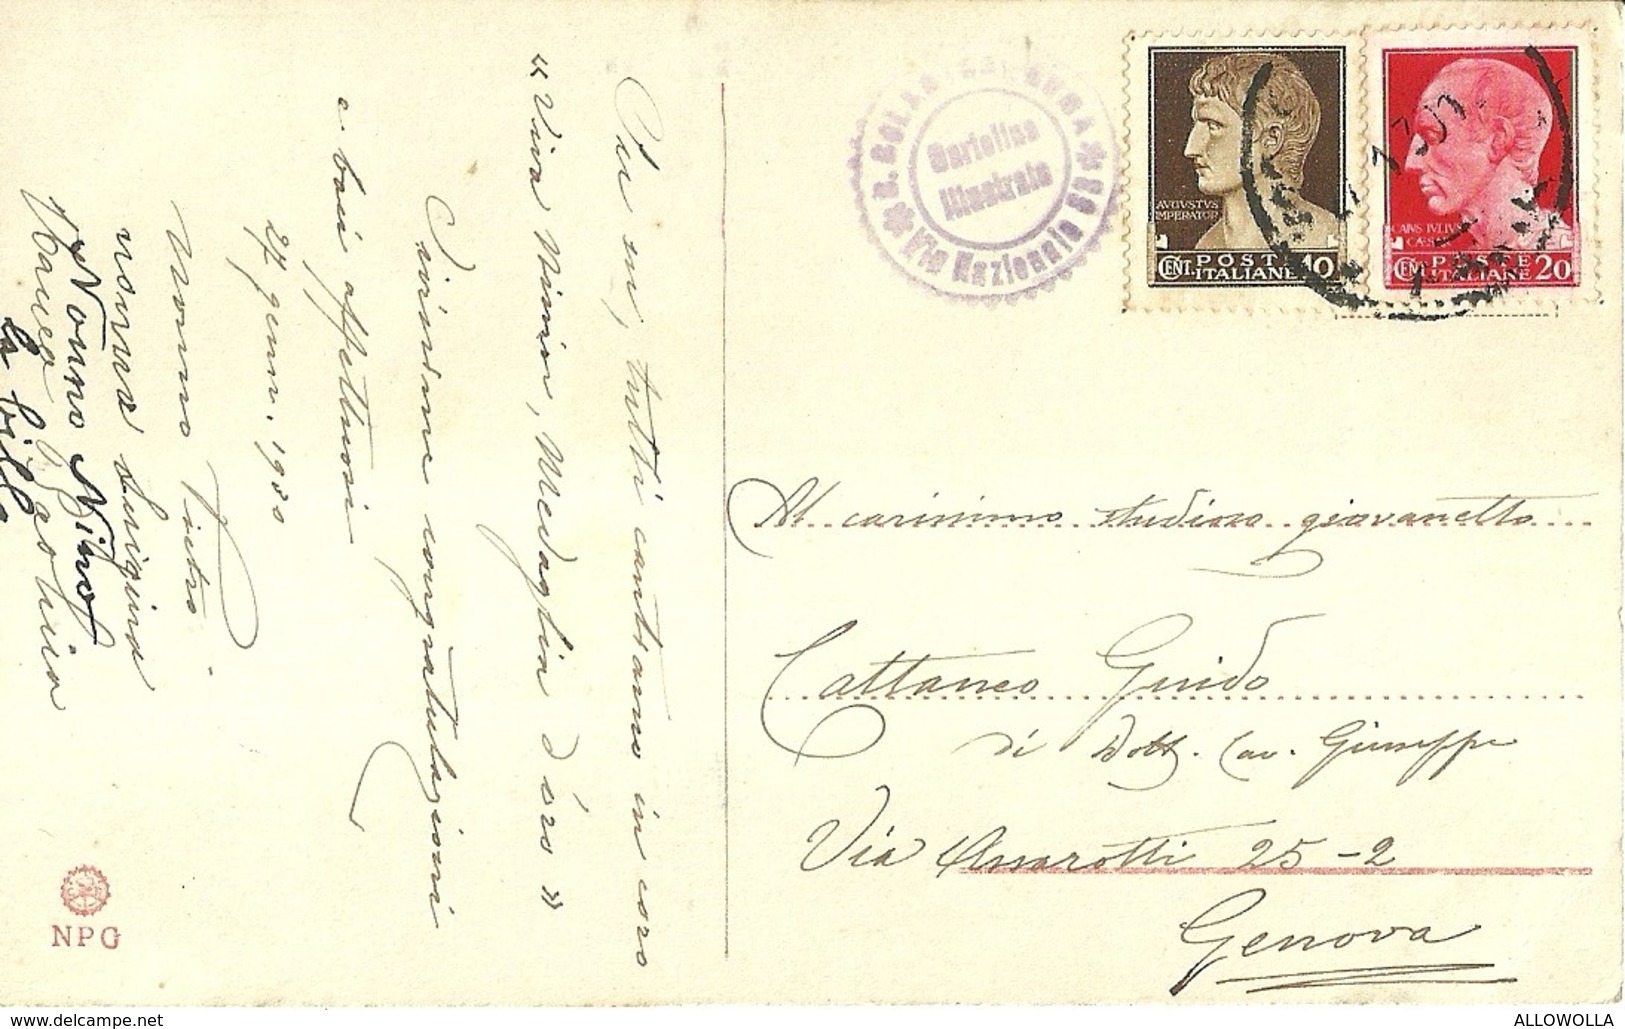 Su su, tutti cantiamo in coro
"Viva Mimmi, Medaglia d'oro"
Vivissime congratulazioni
e baci affettuosi
27 genn. 1930
Nonno Pietro
nonna Luigina
Nonno Nino
la bille
NPG
Cartolina
Illustrata
Via Nazionale
AVGVSTVS
IMPERATOR
CENT. POSTE
ITALIANE 10
CAIVS IVLIVS
CAES
CENT. POSTE
ITALIANE 20
Al carissimo studioso giovanetto
Cattaneo Guido
di Dott. Cav. Giuseppe
Via Assarotti 25-2
Genova
https://www.delcampe.net
ALLOWOLLA